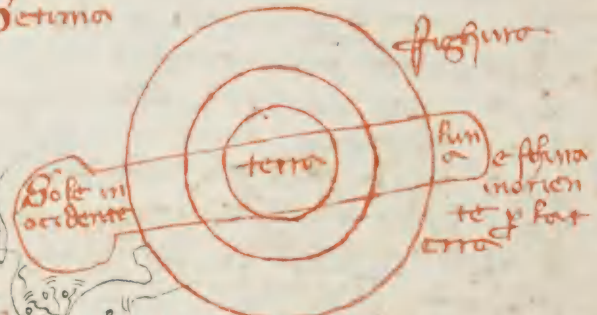 Setima
fighura
terra
Sole in
ocidente
lun
a
e schura
in orien
te p la t
erra